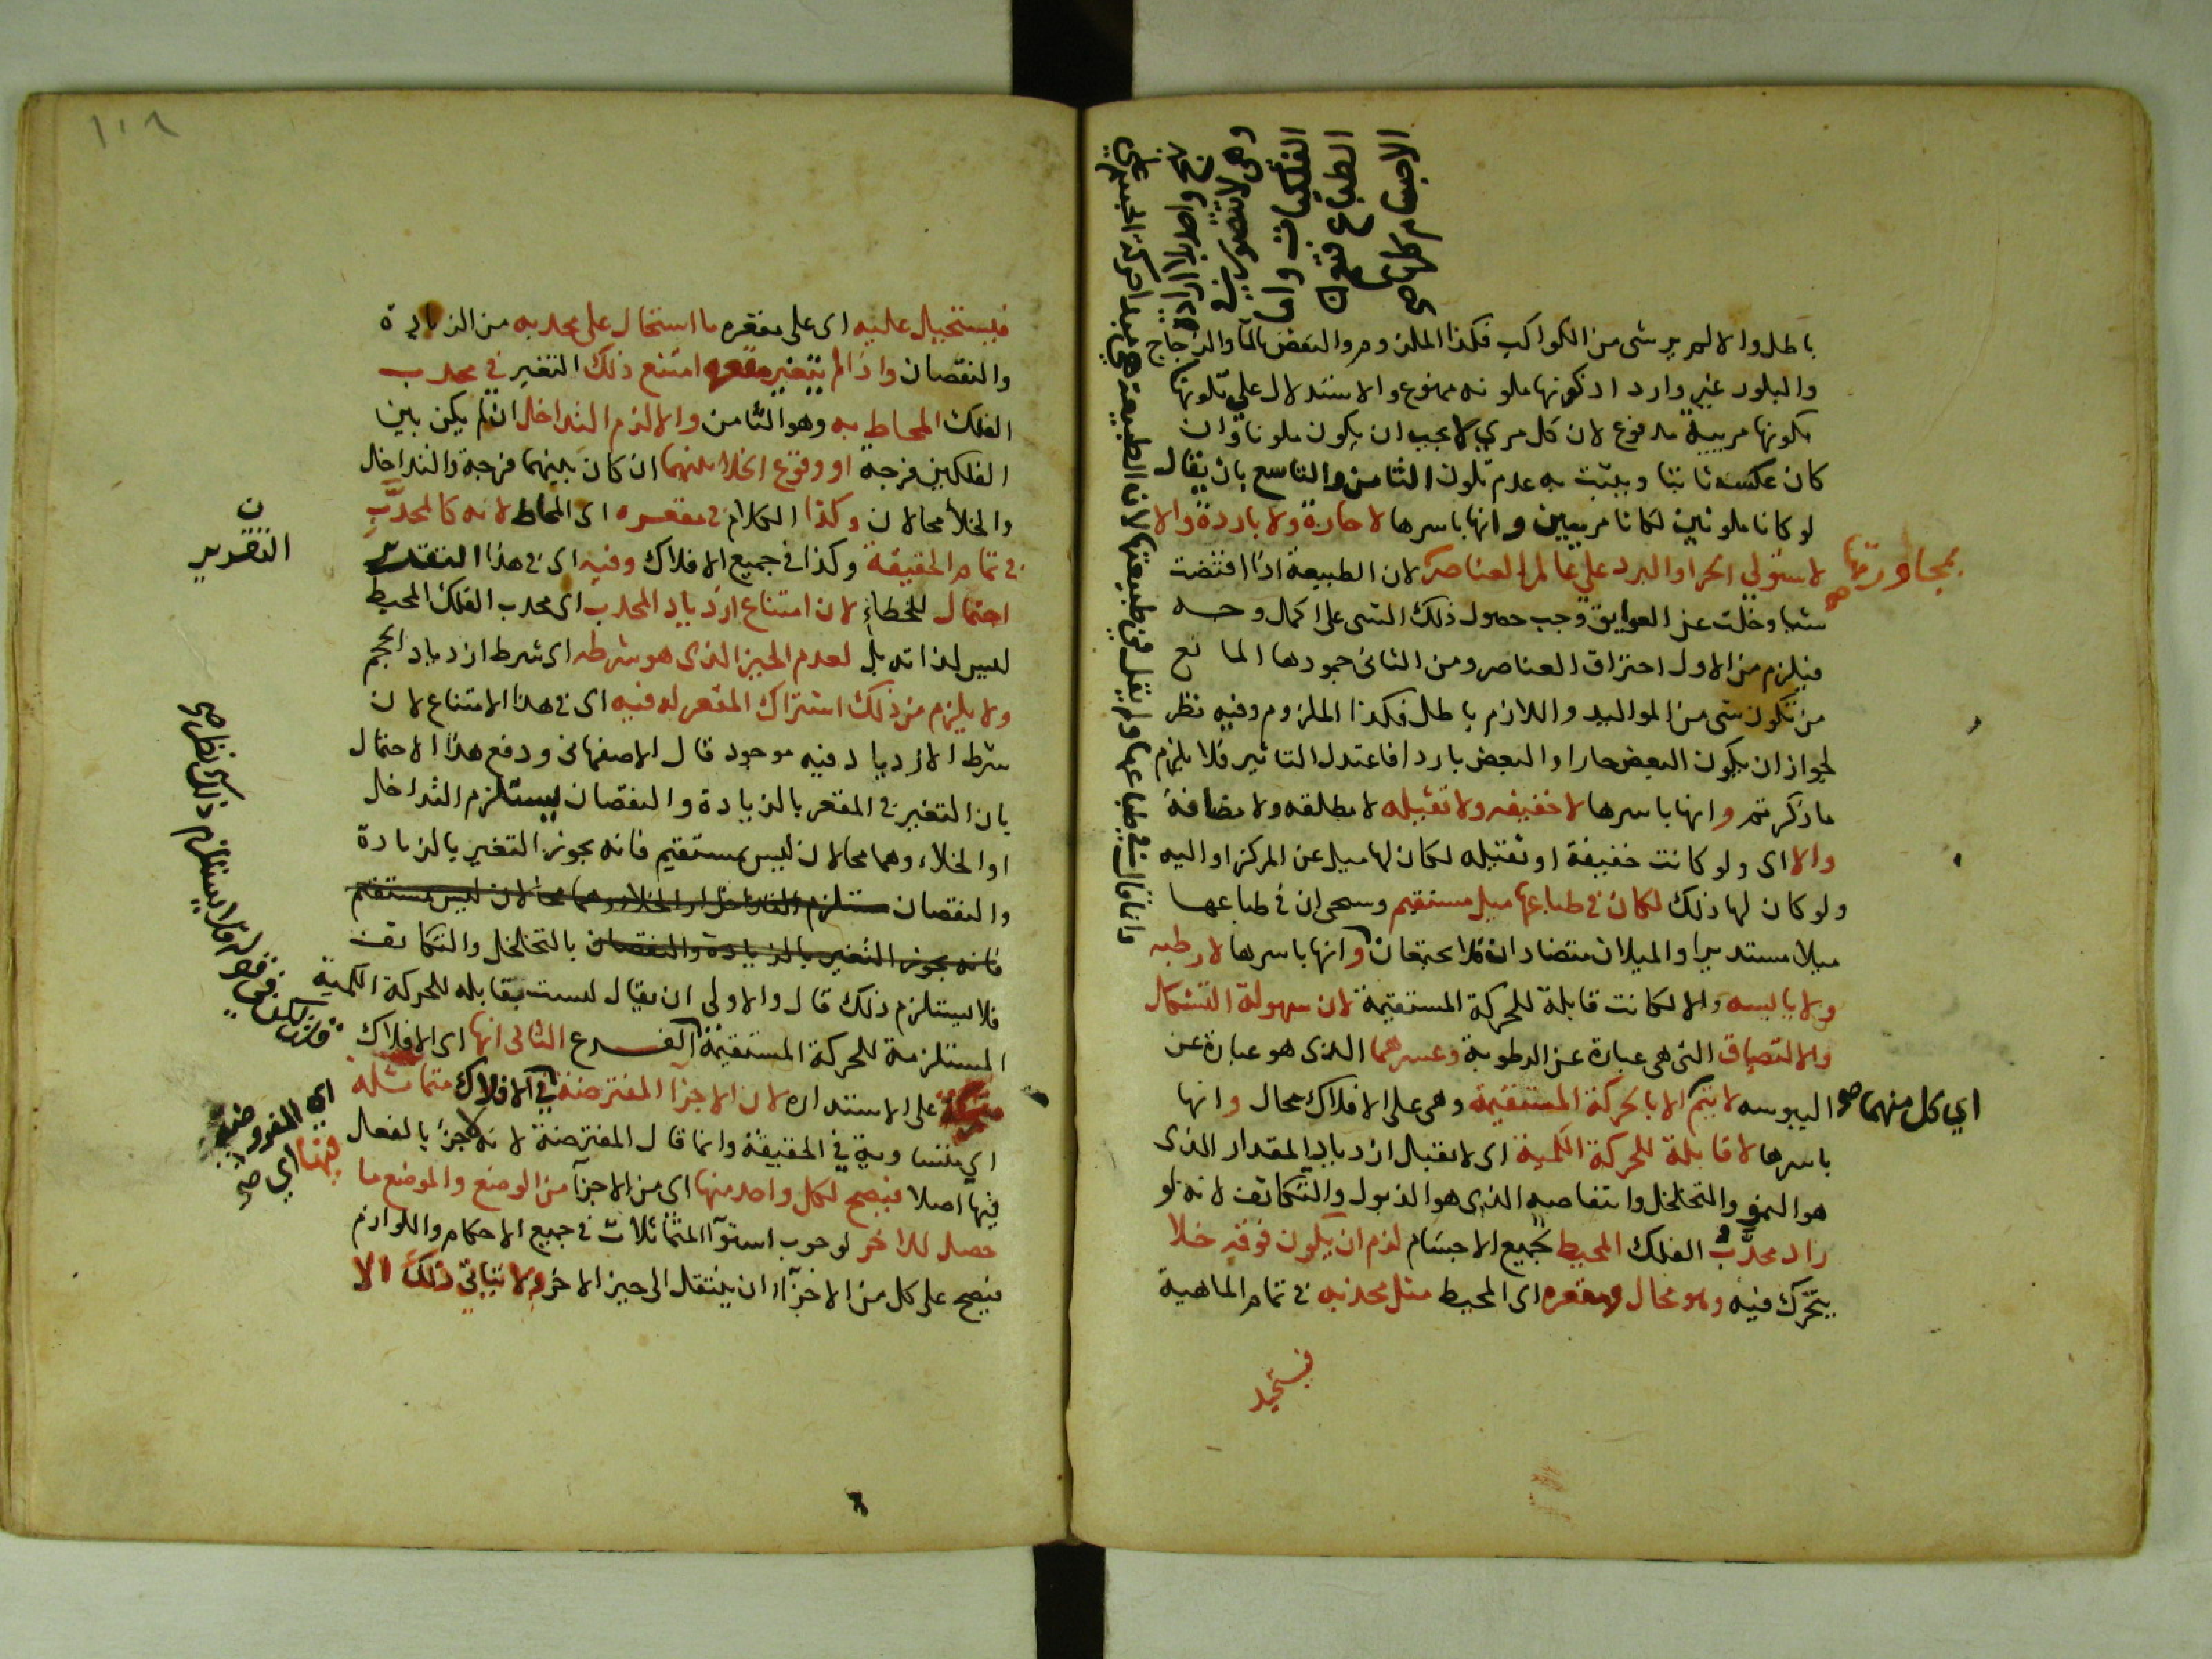 باطل والا لم ير شى من الكواكب فكذا الملزوم والنقض بالمآ والزجاج
والبلور غير وارد اذ كونها ملونه ممنوع والاستدلال على تلونها
بكونها مريية مدفوع لان كل مريي لا يجب ان يكون ملونا وان
كان عكسه ثابتا ويثبت به عدم تلون الثامن والتاسع بان يقال
لو كانا ملونين لكانا مرييين وانها باسرها لا حارة ولا باردة والا
لاستولى الحر او البرد على عالم العناصر لان الطبيعة اذا اقتضت
شيا وخلت عن العوايق وجب حصول ذلك الشى على اكمال وجه
فيلزم من الاول احتراق العناصر ومن الثانى جمودها المانع
من تكون شى من المواليد واللازم باطل فكذا الملزوم وفيه نظر
لجواز ان يكون البعض حارا والبعض باردا فاعتدل التاثير فلا يلزم
ما ذكرتم وانها باسرها لا خفيفه ولا ثقيله لا مطلقه ولا مضافة
والا اى ولو كانت خفيفة او ثقيله لكان لها ميل عن المركز او اليه
ولو كان لها ذلك لكان فى طباعها ميل مستقيم وسيجى ان فى طباعها
ميلا مستديرا والميلان متضادان فلا يجتمعان وانها باسرها لا رطبه
ولا يابسه والا لكانت قابلة للحركة المستقيمة لان سهولة التشكل
والالتصاق التى هى عبارة عن الرطوبة وعسرهما الذى هو عبارة عن
اليبوسه لا يتم الا بالحركة المستقيمة وهى على الافلاك محال وانها
باسرها لا قابلة للحركة الكمية اى لا تقبل ازدياد المقدار الذى
هو النمو والتخلخل وانتقاصه الذى هو الذبول والتكاثف لانه لو
زاد محدَّب الفلك المحيط بجميع الاجسام لزم ان يكون فوقه خلا
يتحرك فيه وهو محال ومقعره اى المحيط مثل محدبه فى تمام الماهية
فيستحيل
بمجاورتها صح
اي كل منهما صح
الاجسام كلها
الطباع فتعم
الفلكيات واما
وهى لا تتصور فى
وانما قال فى طباعها ولم يقل فى طبيعتها لان الطبيعة هي مبدا حركة الجسم
١٠٩
فيستحيل عليه اى على مقعره ما استحال على محدبه من الزيادة
والنقصان واذا لم يتغير مقعره امتنع ذلك التغير فى محدب
الفلك المحاط به وهو الثامن والا لزم التداخل ان لم يكن بين
الفلكين فرجة او وقوع الخلا بينهما ان كان بينهما فرجة والتداخل
والخلأ محالان وكذا الكلام فى مقعره اى المحاط لانه كالمحدَّب
فى تمام الحقيقة وكذا فى جميع الافلاك وفيه اى فى هذا التقدير
احتمال للخطاء لان امتناع ازدياد المحدب اى محدب الفلك المحيط
ليس لذاته بل لعدم الحيز الذى هو شرطه اى شرط ازدياد الحجم
ولا يلزم من ذلك اشتراك المقعر له فيه اى فى هذا الامتناع لان
شرط الازدياد فيه موجود قال الاصفهانى ودفع هذا الاحتمال
بان التغير فى المقعر بالزيادة والنقصان يستلزم التداخل
او الخلاء وهما محالان ليس بمستقيم فانه يجوز التغير بالزيادة
والنقصان مستلزم التداخل او الخلاء وهما محالان ليس بمستقيم
فانه يجوز التغير بالزيادة والنقصان بالتخلخل والتكاثف
فلا يستلزم ذلك قال والاولى ان يقال ليست بقابله للحركة الكمية
المستلزمة للحركة المستقيمة الفرع الثانى انها اى الافلاك
متحركة على الاستداره لان الاجزآ المفترضة في الافلاك متماثله
اي متساوية في الحقيقة وانما قال المفترضة لانه لا جزء بالفعل
فيها اصلا فيصح لكل واحد منها اى من الاجزآ من الوضع والموضع ما
حصل للاخر لوجوب استوآ المتماثلات فى جميع الاحكام واللوازم
فيصح على كل من الاجزآ ان ينتقل الى حيز الاخر ولا يتاتى ذلك الا
ن
التقرير
فى قوله فلا يستلزم ذلك نظر صح
اي المفروضة
فيها اي صح